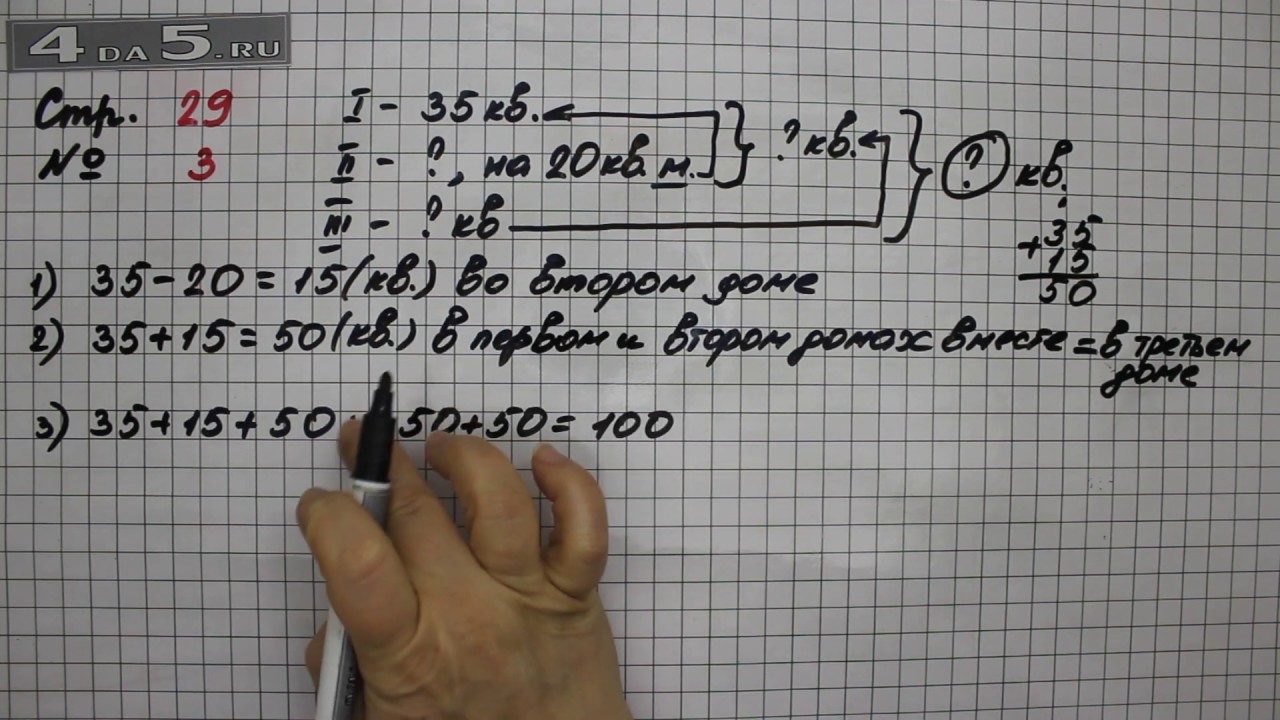 4DA5.RU
Стр. 29
№ 3
I - 35 кв.
II - ?, на 20 кв. м.
III - ? кв
? кв.
? кв.
35
+ 15
50
1) 35 - 20 = 15 (кв.) во втором доме
2) 35 + 15 = 50 (кв.) в первом и втором домах вместе = в третьем
доме
3) 35 + 15 + 50 50 + 50 = 100